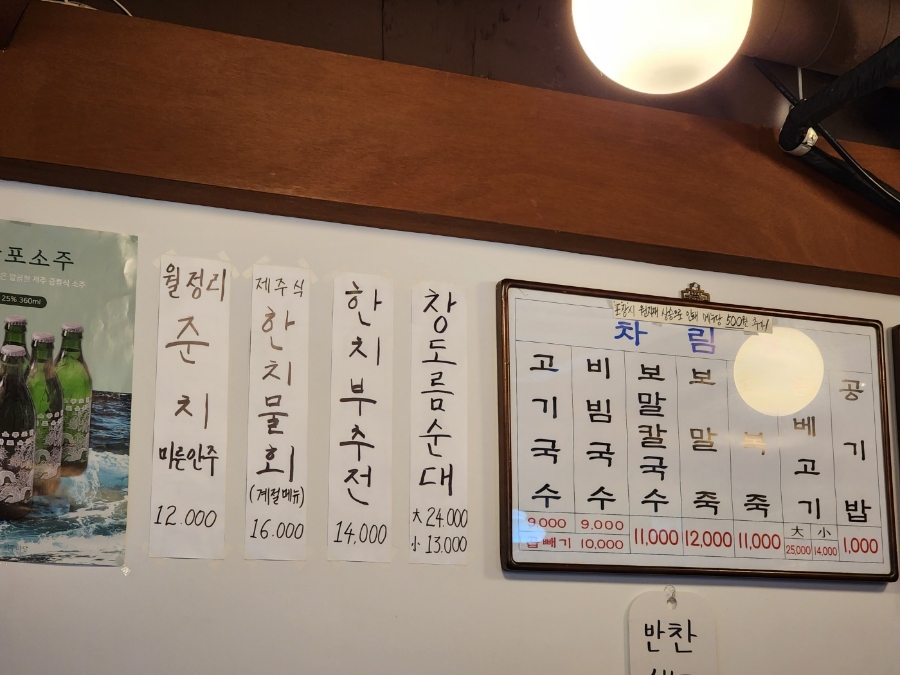 포소주
25% 360ml
월정리
준치
마른안주
12.000
제주식
한치물회
(계절메뉴)
16.000
한치부추전
14,000
창도름순대
大 24.000
小 13,000
포장시 원자재 상승으로 인해 1개당 500원 추가
차림
고기국수
9,000
비빔국수
9,000
곱빼기 10,000
보말칼국수
11,000
보말죽
12,000
죽
11,000
베고기
大 小
25,000 14,000
공기밥
1,000
반찬